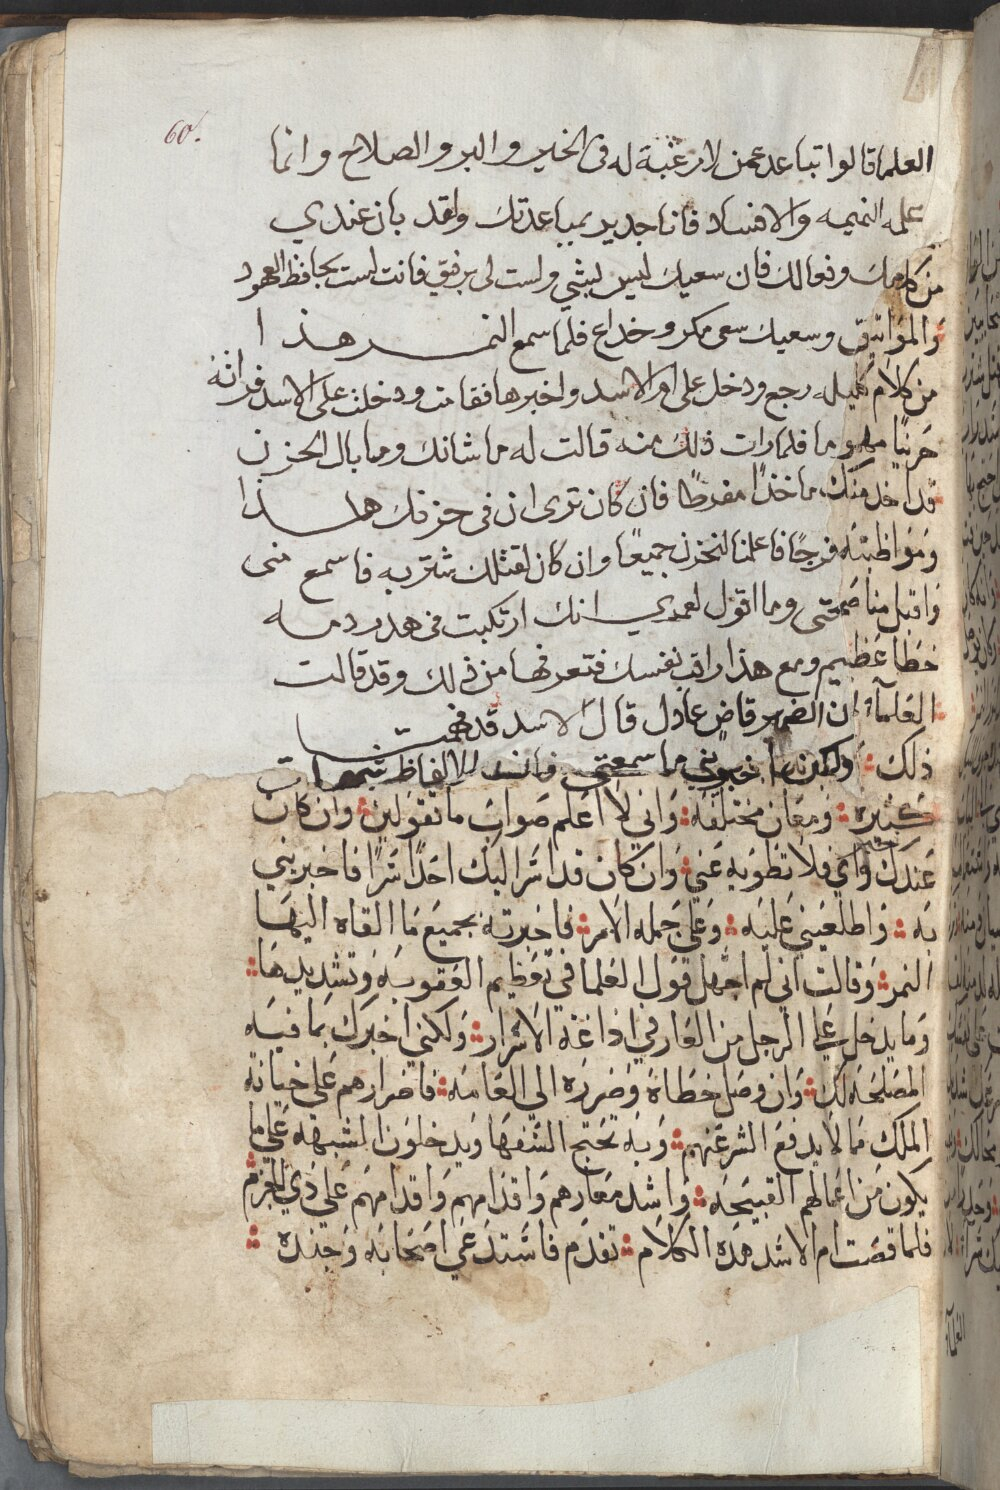 60.
العلما قالوا تباعد عمن لا رغبة له فى الخير والبر والصلاح وانما
عمله النميمه والافساد فانا جدير بمباعدتك ولقد بان عندي
من كلامك وفعالك فان سعيك ليس لبثي ولست لى برفيق فانت لست بحافظ العهود
والمواثيق وسعيك سعى مكر وخداع فلما سمع النمر هذا
من كلام كليله رجع ودخل على ام الاسد واخبرها فقامت ودخلت على الاسد فراته
حزينًا مهموما فلما رات ذلك منه قالت له ما شانك وما بال الحزن
قد اخذ منك ماخذًا مفرطًا فان كان ترى ان فى حزنك هذا
ومواظبته فرجًا فاعلمنا لنحزن جميعًا وان كان لقتلك شتربه فاسمع منى
واقبل مناصحتى وما اقول لعمري انك ارتكبت فى هدر دمه
خطا عظيم ومع هذا راقب نفسك فتعرفها من ذلك وقد قالت
العلمآء ان الضمير قاضٍ عادل قال الاسد قد فهمت
ذلك ولكن خبريني ما سمعتى فانت الالفاظ
كثيره ومعان مختلفه واني لا اعلم صواب ما تقولين وان كان
عندك راي فلا تطويه عني وان كان قد اسر اليك احدًا سرًا فاخبريني
به واطلعيني عليه وعلي جمله الامر فاخبرته بجميع ما القاه اليها
النمر وقالت اني لم اجهل قول العلما في تعظيم العقوبه وتشديدها
وما يدخل علي الرجل من العار في اذاعة الاسرار ولكني اخبرك بما فيه
المصلحه لك وان وصل خطاة وضرره الي العامه فاضرارهم علي خيانة
الملك مما لا يدفع الشر عنهم وبه تحتج السفها ويدخلون الشبهه علي ما
يكون من اعمالهم القبيحه واشد معارهم واقدامهم واقدامهم علي ذي الجرم
فلما قصت ام الاسد هذه الكلام تقدم فاستدعي اصحابه وجنده